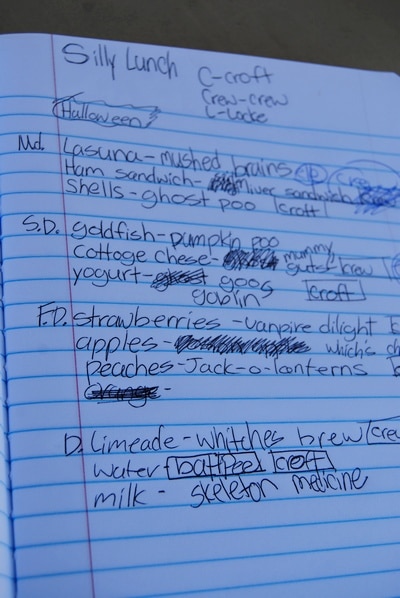 Silly Lunch C-croft
Crew-crew
L-Locke
Halloween
Md. Lasuna - mushed brains
Ham sandwich - sandwich
Shells - ghost poo croft
S.D. goldfish - pumpkin poo
Cottoge chese - mummy guts crew
yogurt - goog
goblin croft
F.D. Strawberries - vanpire dilight
apples - which's
peaches - Jack-o-lonterns
orange -
D. Limeade - whitches brew cre
water batt Pee croft
milk - skeleton medicine